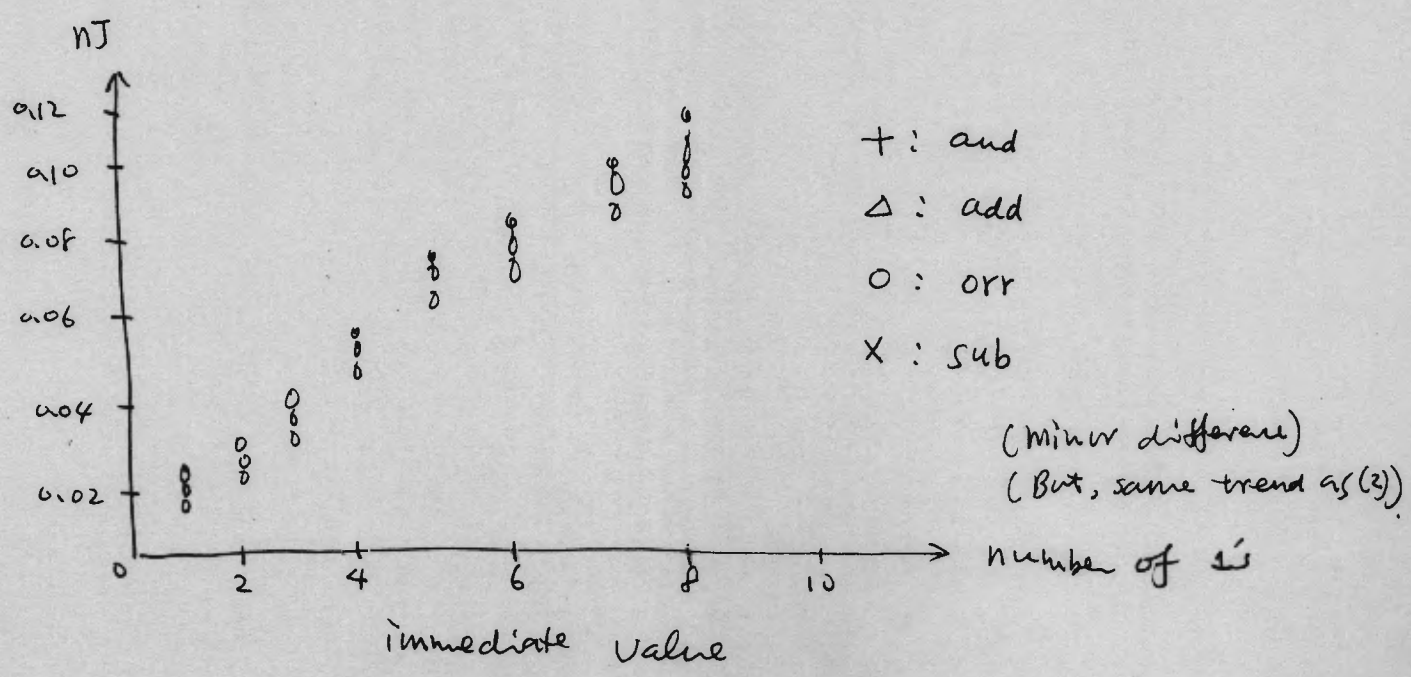 nJ
0.12
0.10
0.08
0.06
0.04
0.02
0 2 4 6 8 10
number of 1's
immediate value
+ : and
Δ : add
O : orr
X : sub
(minor difference)
(But, same trend as (2)).